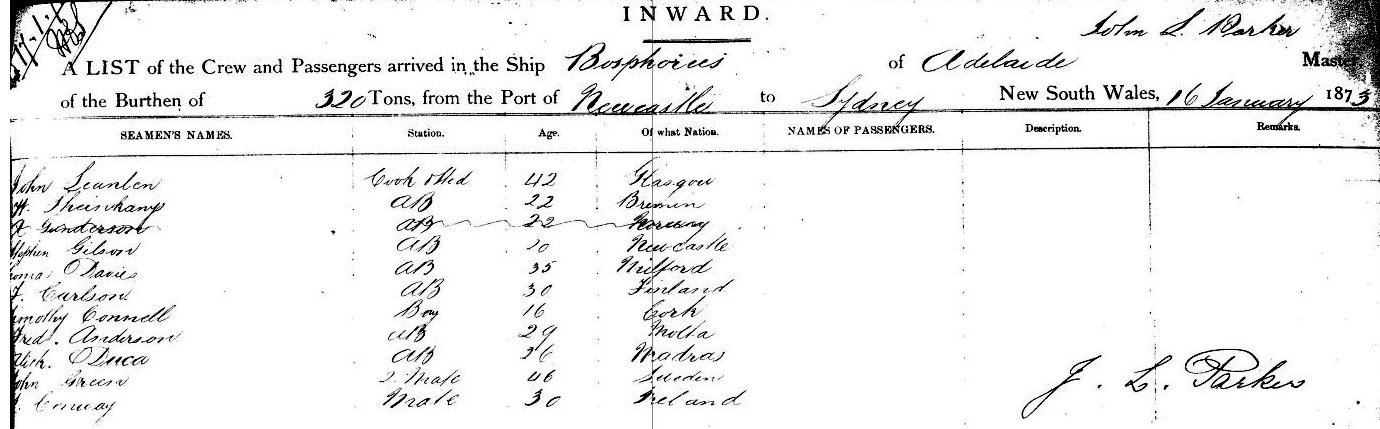 INWARD.
John S. Parker
A LIST of the Crew and Passengers arrived in the Ship Bosphorus of Adelaide Master
of the Burthen of 320 Tons, from the Port of Newcastle to Sydney New South Wales, 16 January 1873
SEAMEN'S NAMES. Station. Age. Of what Nation. NAMES OF PASSENGERS. Description. Remarks.
John Scanlen Cook & Std 42 Glasgow
AB 22 Bremin
Gunderson AB 22 Norway
Stephen Gilson AB 20 Newcastle
Davies AB 35 Milford
Carlson AB 30 Finland
Timothy Connell Boy 16 Cork
Fred. Anderson AB 29 Molta
Duca AB 36 Madras
John Green 2. Mate 46 Sweden
Conway Mate 30 Ireland
J. L. Parker